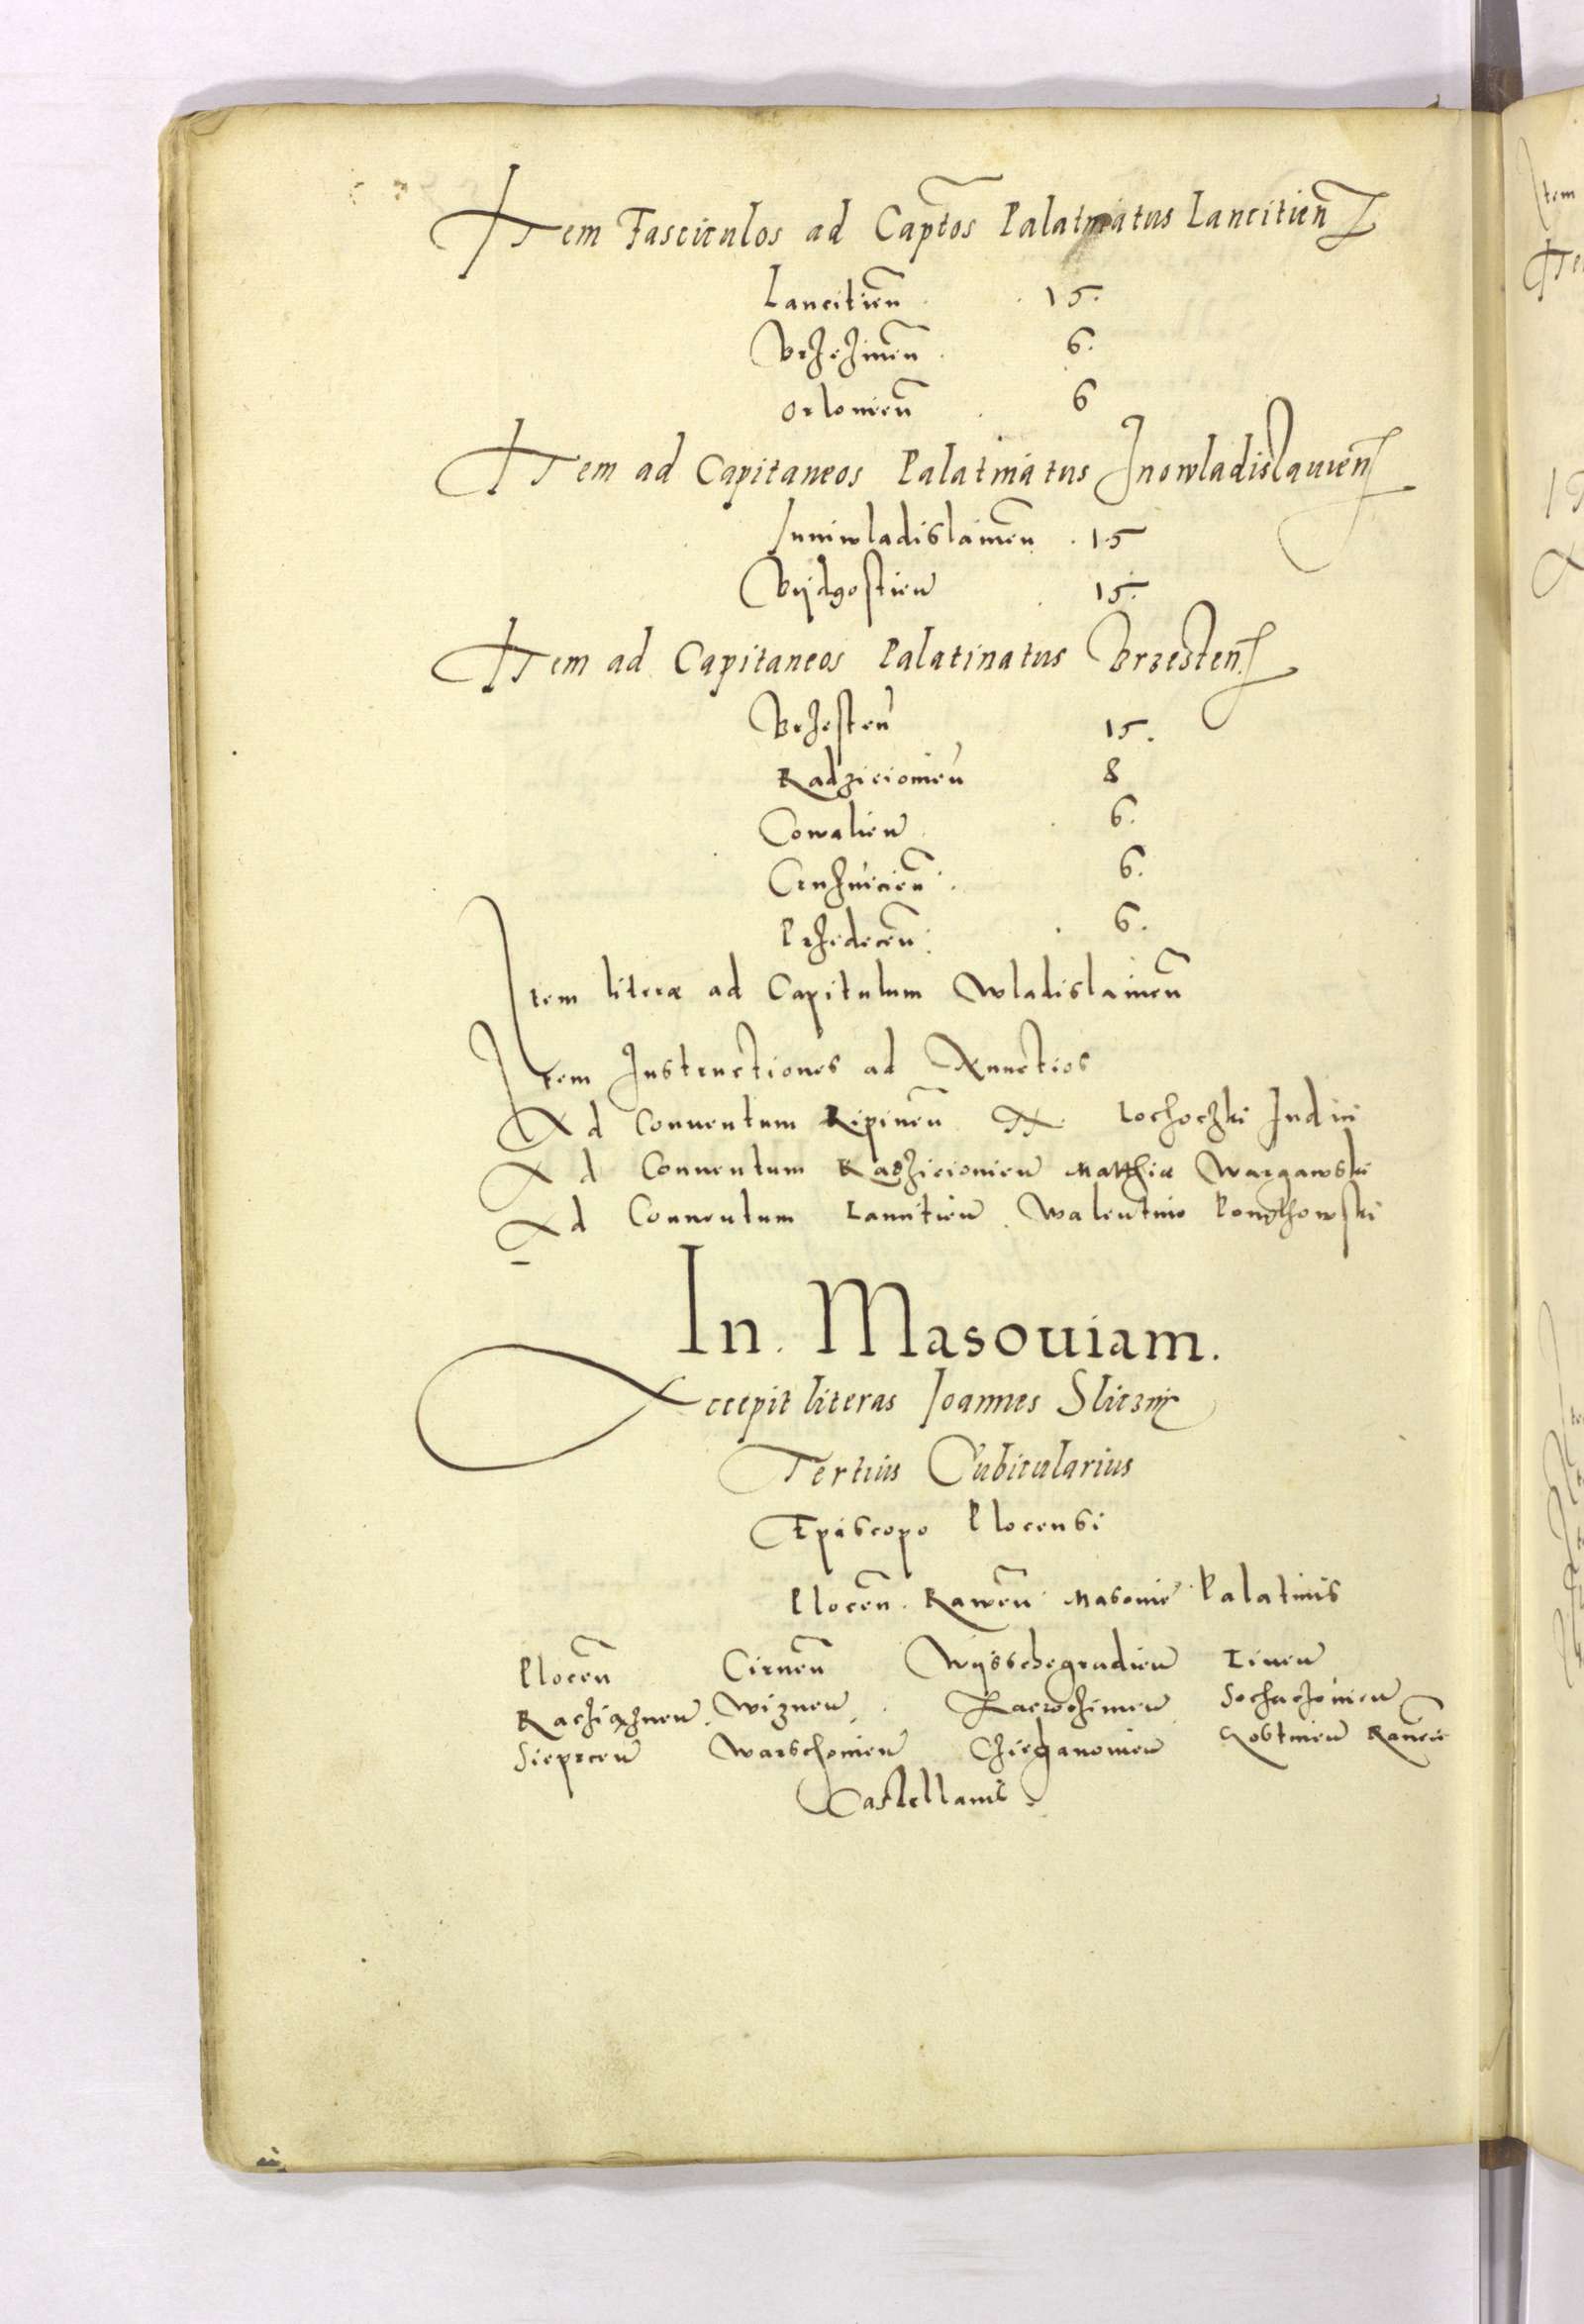 Item Fasciculos ad Captos Palatinatus Lancitien
Lancitien 15.
Brzezinen 6.
Orlovien 6
Item ad Capitaneos Palatinatus Inowladislauien
Iuniwladislauien 15
Bijdgostien 15.
Item ad Capitaneos Palatinatus Brzesten
Brzesten 15.
Radzieiouien 8
Cowalien 6.
Cruszuicien 6.
Przedecen 6.
Item literæ ad Capitulum Wladislauien
Item Instructiones ad Nunctios
Ad Conuentum Ripinen Lochoczki Iudici
Ad Conuentum Radzieiouien Matthiæ Wargawski
Ad Conuentum Lancitien Walentino
In Masouiam.
Accepit literas Ioannes
Tertius Cubicularius
Episcopo Plocensi
Plocen. Rawen Masouie Palatinis
Plocen Cirnen Wijsschegradien Liuen
Wiznen Zacrochimen Sochaczouien
Sieprcen Warschouien Gostinen
Castellanis